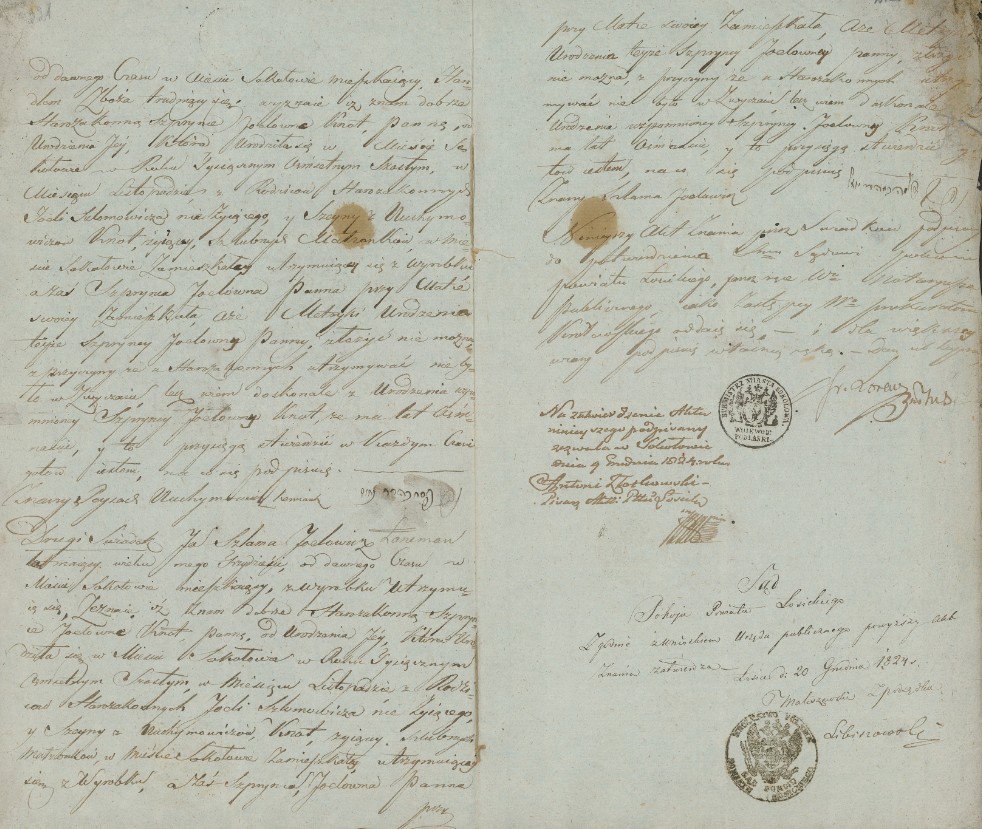 od dawnego Czasu w Mieście Sokołowie mieszkaiący, Han-
dlem Zboża trudniący się, wyznaie iż znam dobrze
Starozakonną Szprynę Joelowne Knot, Pannę, od
Urodzenia Jey, która Urodziła się w Mieście So-
kołowie w Roku Tysiącznym Ośmsetnym Szostym, w
Miesiącu Listopadzie, z Rodziców Starozakonnych
Joeli Szlomowicza nie żyiącego, y Szeyny z Nuchymo-
wiczów Knot, żyiącey, Szlubnych Małżonków, w Mie-
ście Sokołowie Zamieszkałey utrzymuiącey się z wyrobku
a Zaś Szprynia Joelowna Panna przy Matce
swoiey Zamieszkała, Aże Metryki Urodzenia
teyże Szpryncy Joelowney Panny, złożyć nie można
z przyczyny że u Starozakonnych utrzymywać nie by-
ło w Zwyczaiu, lecz wiem doskonale z Urodzenia wspo-
mnioney Szpryncy Joelowney Knot że ma lat Ośm-
naście, y to przysięgą stwierdzić w Każdym Czasie
gotów iestem, na co się podpisuię.
Znany Peysach Nuchymowicz
Drugi Świadek Ja Szlama Joelowicz
lat maiący wieku mego Trzydzieści, od dawnego Czasu w
Mieście Sokołowie mieszkaiący, z wyrobku Utrzymu-
ią się, Zeznaie iż Znam dobrze Starozakonną Szpryn-
ie Joelowne Knot Pannę, od Urodzenia Jey, która Uro-
dziła się w Mieście Sokołowie w Roku Tysiącznym
Ośmsetnym Szostym, w Miesiącu Listopadzie z Rodzi-
ców Starozakonnych Joeli Szlomowicza nie żyiącego,
y Szeyny z Nuchymowiczów Knot, żyiącey Szlubnych
Małżonków, w Mieście Sokołowie Zamieszkałey, utrzymuiącey
się z Wyrobku, a Zaś Szprynia Joelowna Panna
przy
przy Matce swoiey Zamieszkała, Aże Metryki
Urodzenia teyże Szpryncy Joelowney Panny, złożyć
nie można, z przyczyny że u Starozakonnych utrzy-
mywać nie było w Zwyczaiu lecz wiem doskonale
Urodzenia wspomnioney Szpryncy Joelowney Knot
ma lat Ośmnaście, y to przysięgą stwierdzić go-
tów iestem, na co się podpisuię
Znany Szlama Joelowicz
Ninieyszy Akt Znania przez Świadków podpisany
do potwierdzenia Sądowi Pokoiu
powiatu Łosickiego, przez ręce Notaryusza
Publicznego, oddaię się, — i dla większey
wiary podpisuię własną ręką. —
BURMISTRZ MIASTA SOKOŁOWA
WOJEWOD:
PODLASKIE
Na zatwierdzenie Aktu
ninieyszego podpisany
zezwala w Sokołowie
dnia 9 Grudnia 1824 roku
Antoni
Sąd
Pokoju Powiatu Łosickiego
Zgodnie z Wnioskiem Urzędu publicznego powyższy Akt
Znania zatwierdza —
Łosice d: 20 Grudnia 1824 r.